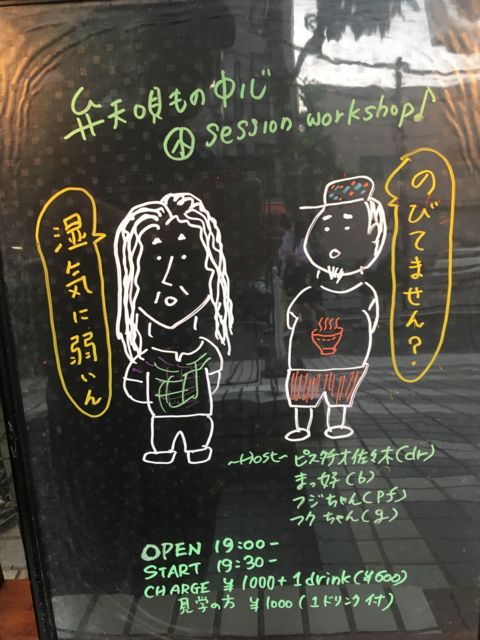 弁天唄もの中心
session workshop♪
のびてません?
湿気に弱いん
~Host~ ピスタチオ佐々木(dr)
まっ好(b)
フジちゃん(Pf)
フクちゃん(g)
OPEN 19:00-
START 19:30-
CHARGE ¥1000+1drink(¥600)
見学の方 ¥1000(1ドリンク付)